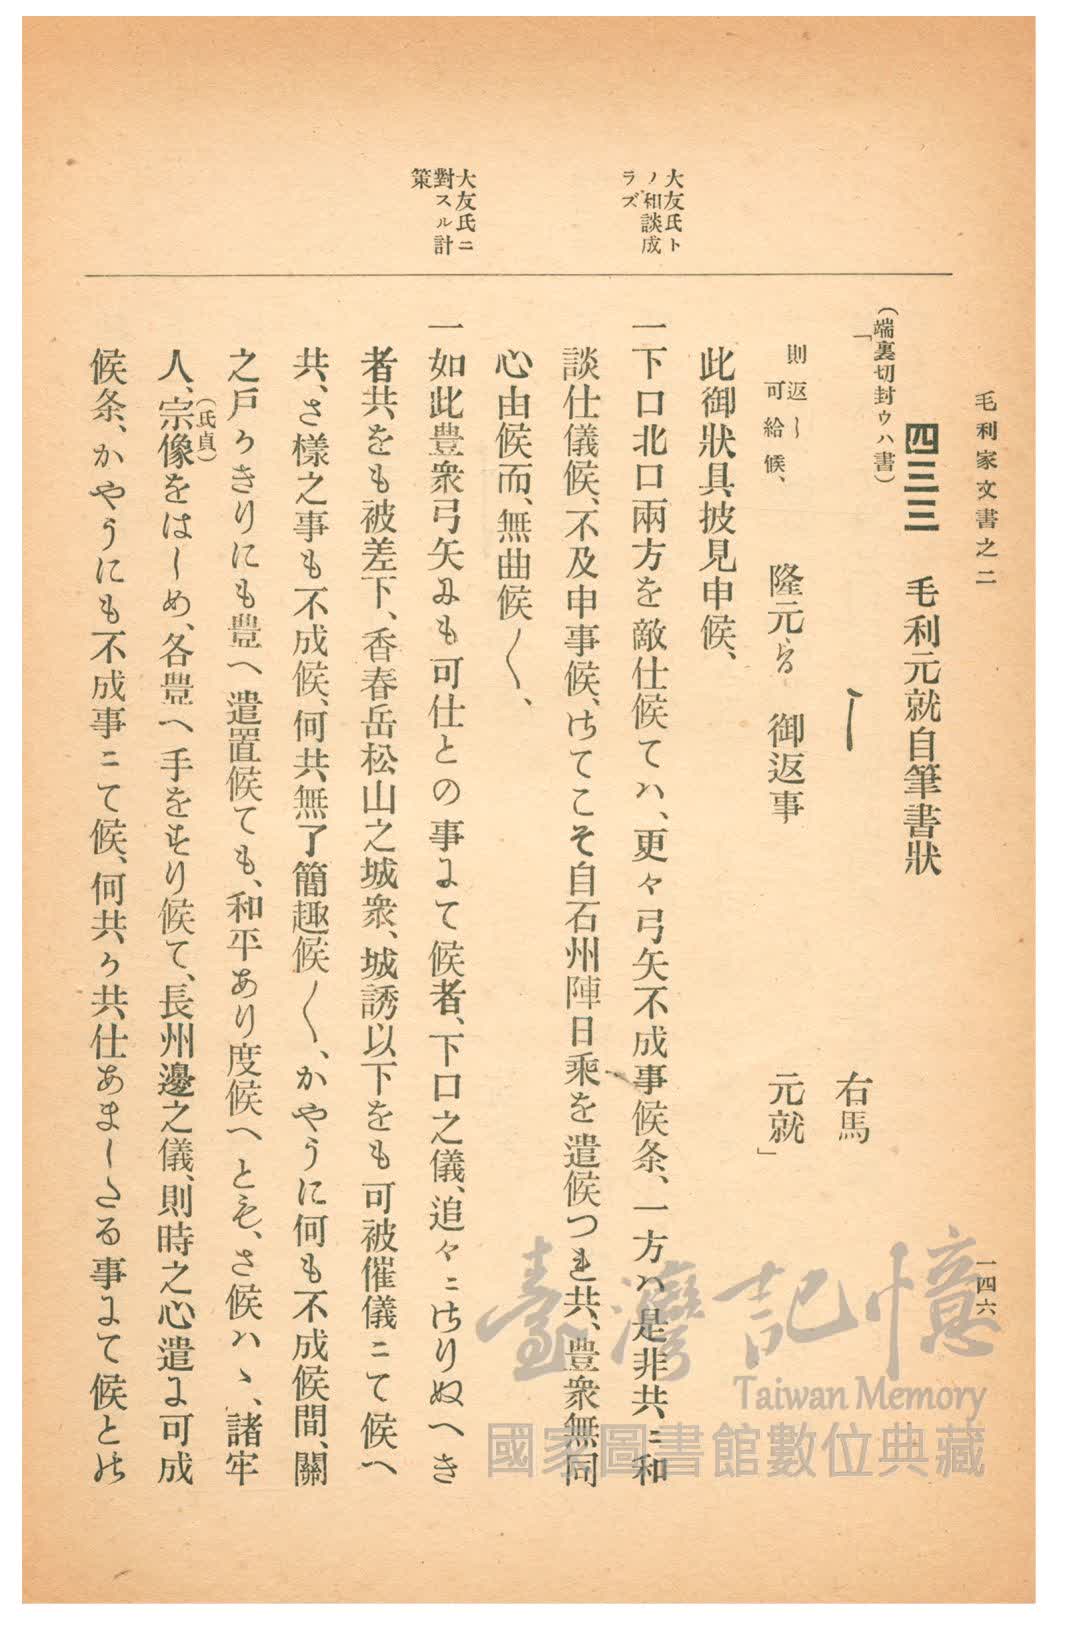 毛利家文書之二
一四六
四三三　毛利元就自筆書狀
（端裏切封ウハ書）
「　　　　　　　　右馬
隆元ゟ　御返事　　　　元就」
則返〳〵
可給候、
此御狀具披見申候、
大友氏ト
ノ和談成
ラズ
一下口北口兩方を敵仕候てハ、更々弓矢不成事候条、一方ハ是非共ニ和
談仕儀候、不及申事候、けてこそ自石州陣日乘を遣候つれ共、豊衆無同
心由候而、無曲候〳〵、
大友氏ニ
對スル計
策
一如此豊衆弓矢にも可仕との事にて候者、下口之儀、追々ニけりぬへき
者共をも被差下、香春岳松山之城衆、城誘以下をも可被催儀ニて候へ
共、さ樣之事も不成候、何共無了簡趣候〳〵、かやうに何も不成候間、關
之戶かきりにも豊へ遣置候ても、和平あり度候へとも、さ候ハヽ、諸牢
（氏貞）
人、宗像をはしめ、各豊へ手をすり候て、長州邊之儀、則時之心遣に可成
候条、かやうにも不成事ニて候、何共か共仕あましたる事にて候との
臺灣記憶
Taiwan Memory
國家圖書館數位典藏